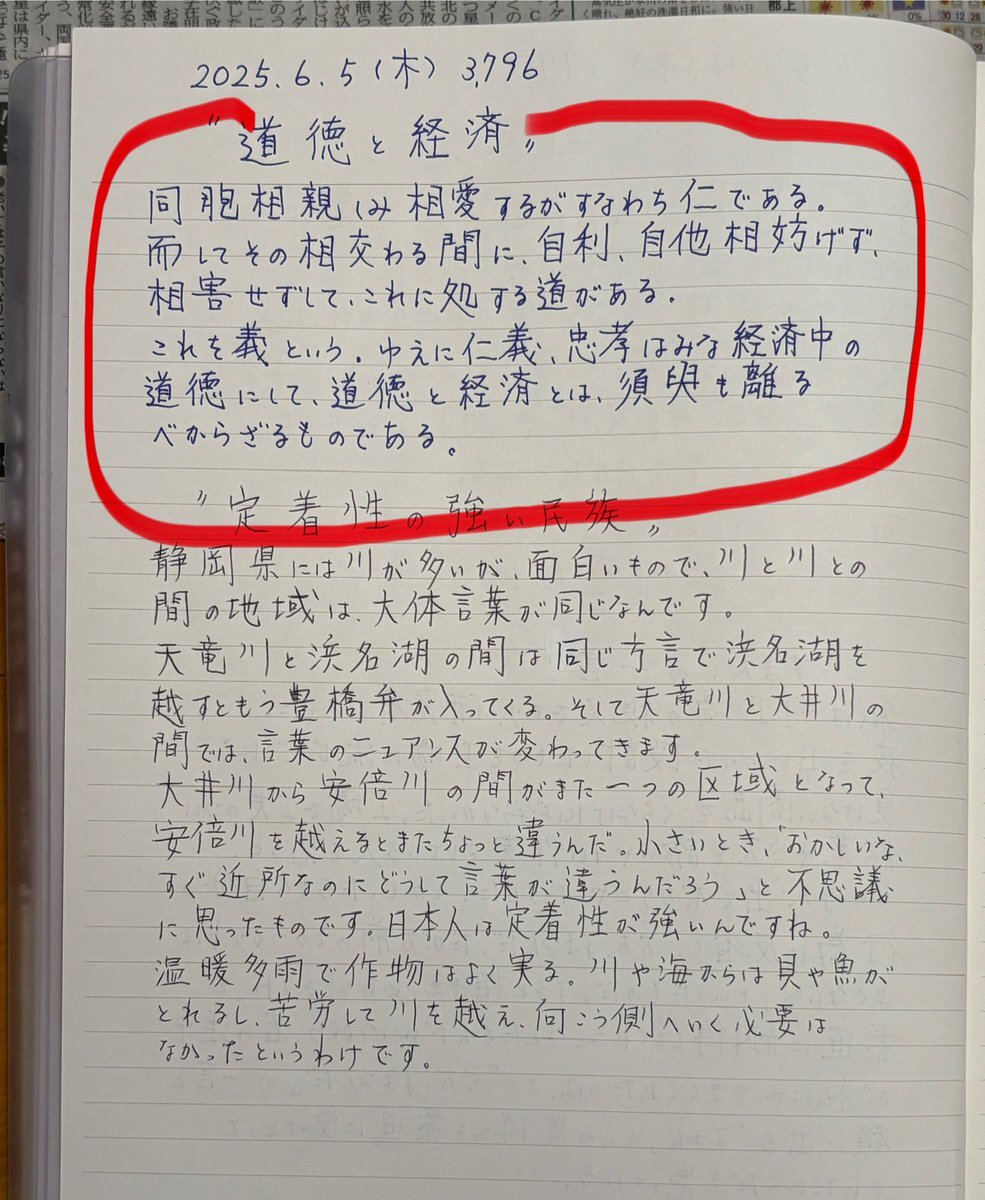 2025.6.5(木) 3,796
〝道徳と経済〟
同胞相親しみ相愛するがすなわち仁である。
而してその相交わる間に、自利、自他相妨げず、
相害せずして、これに処する道がある。
これを義という。ゆえに仁義、忠孝はみな経済中の
道徳にして、道徳と経済とは、須臾も離る
べからざるものである。
〝定着性の強い民族〟
静岡県には川が多いが、面白いもので、川と川との
間の地域は、大体言葉が同じなんです。
天竜川と浜名湖の間は同じ方言で浜名湖を
越すともう豊橋弁が入ってくる。そして天竜川と大井川の
間では、言葉のニュアンスが変わってきます。
大井川から安倍川の間がまた一つの区域となって、
安倍川を越えるとまたちょっと違うんだ。小さいとき、「おかしいな、
すぐ近所なのにどうして言葉が違うんだろう」と不思議
に思ったものです。日本人は定着性が強いんですね。
温暖多雨で作物はよく実る。川や海からは貝や魚が
とれるし、苦労して川を越え、向こう側へいく必要は
なかったというわけです。